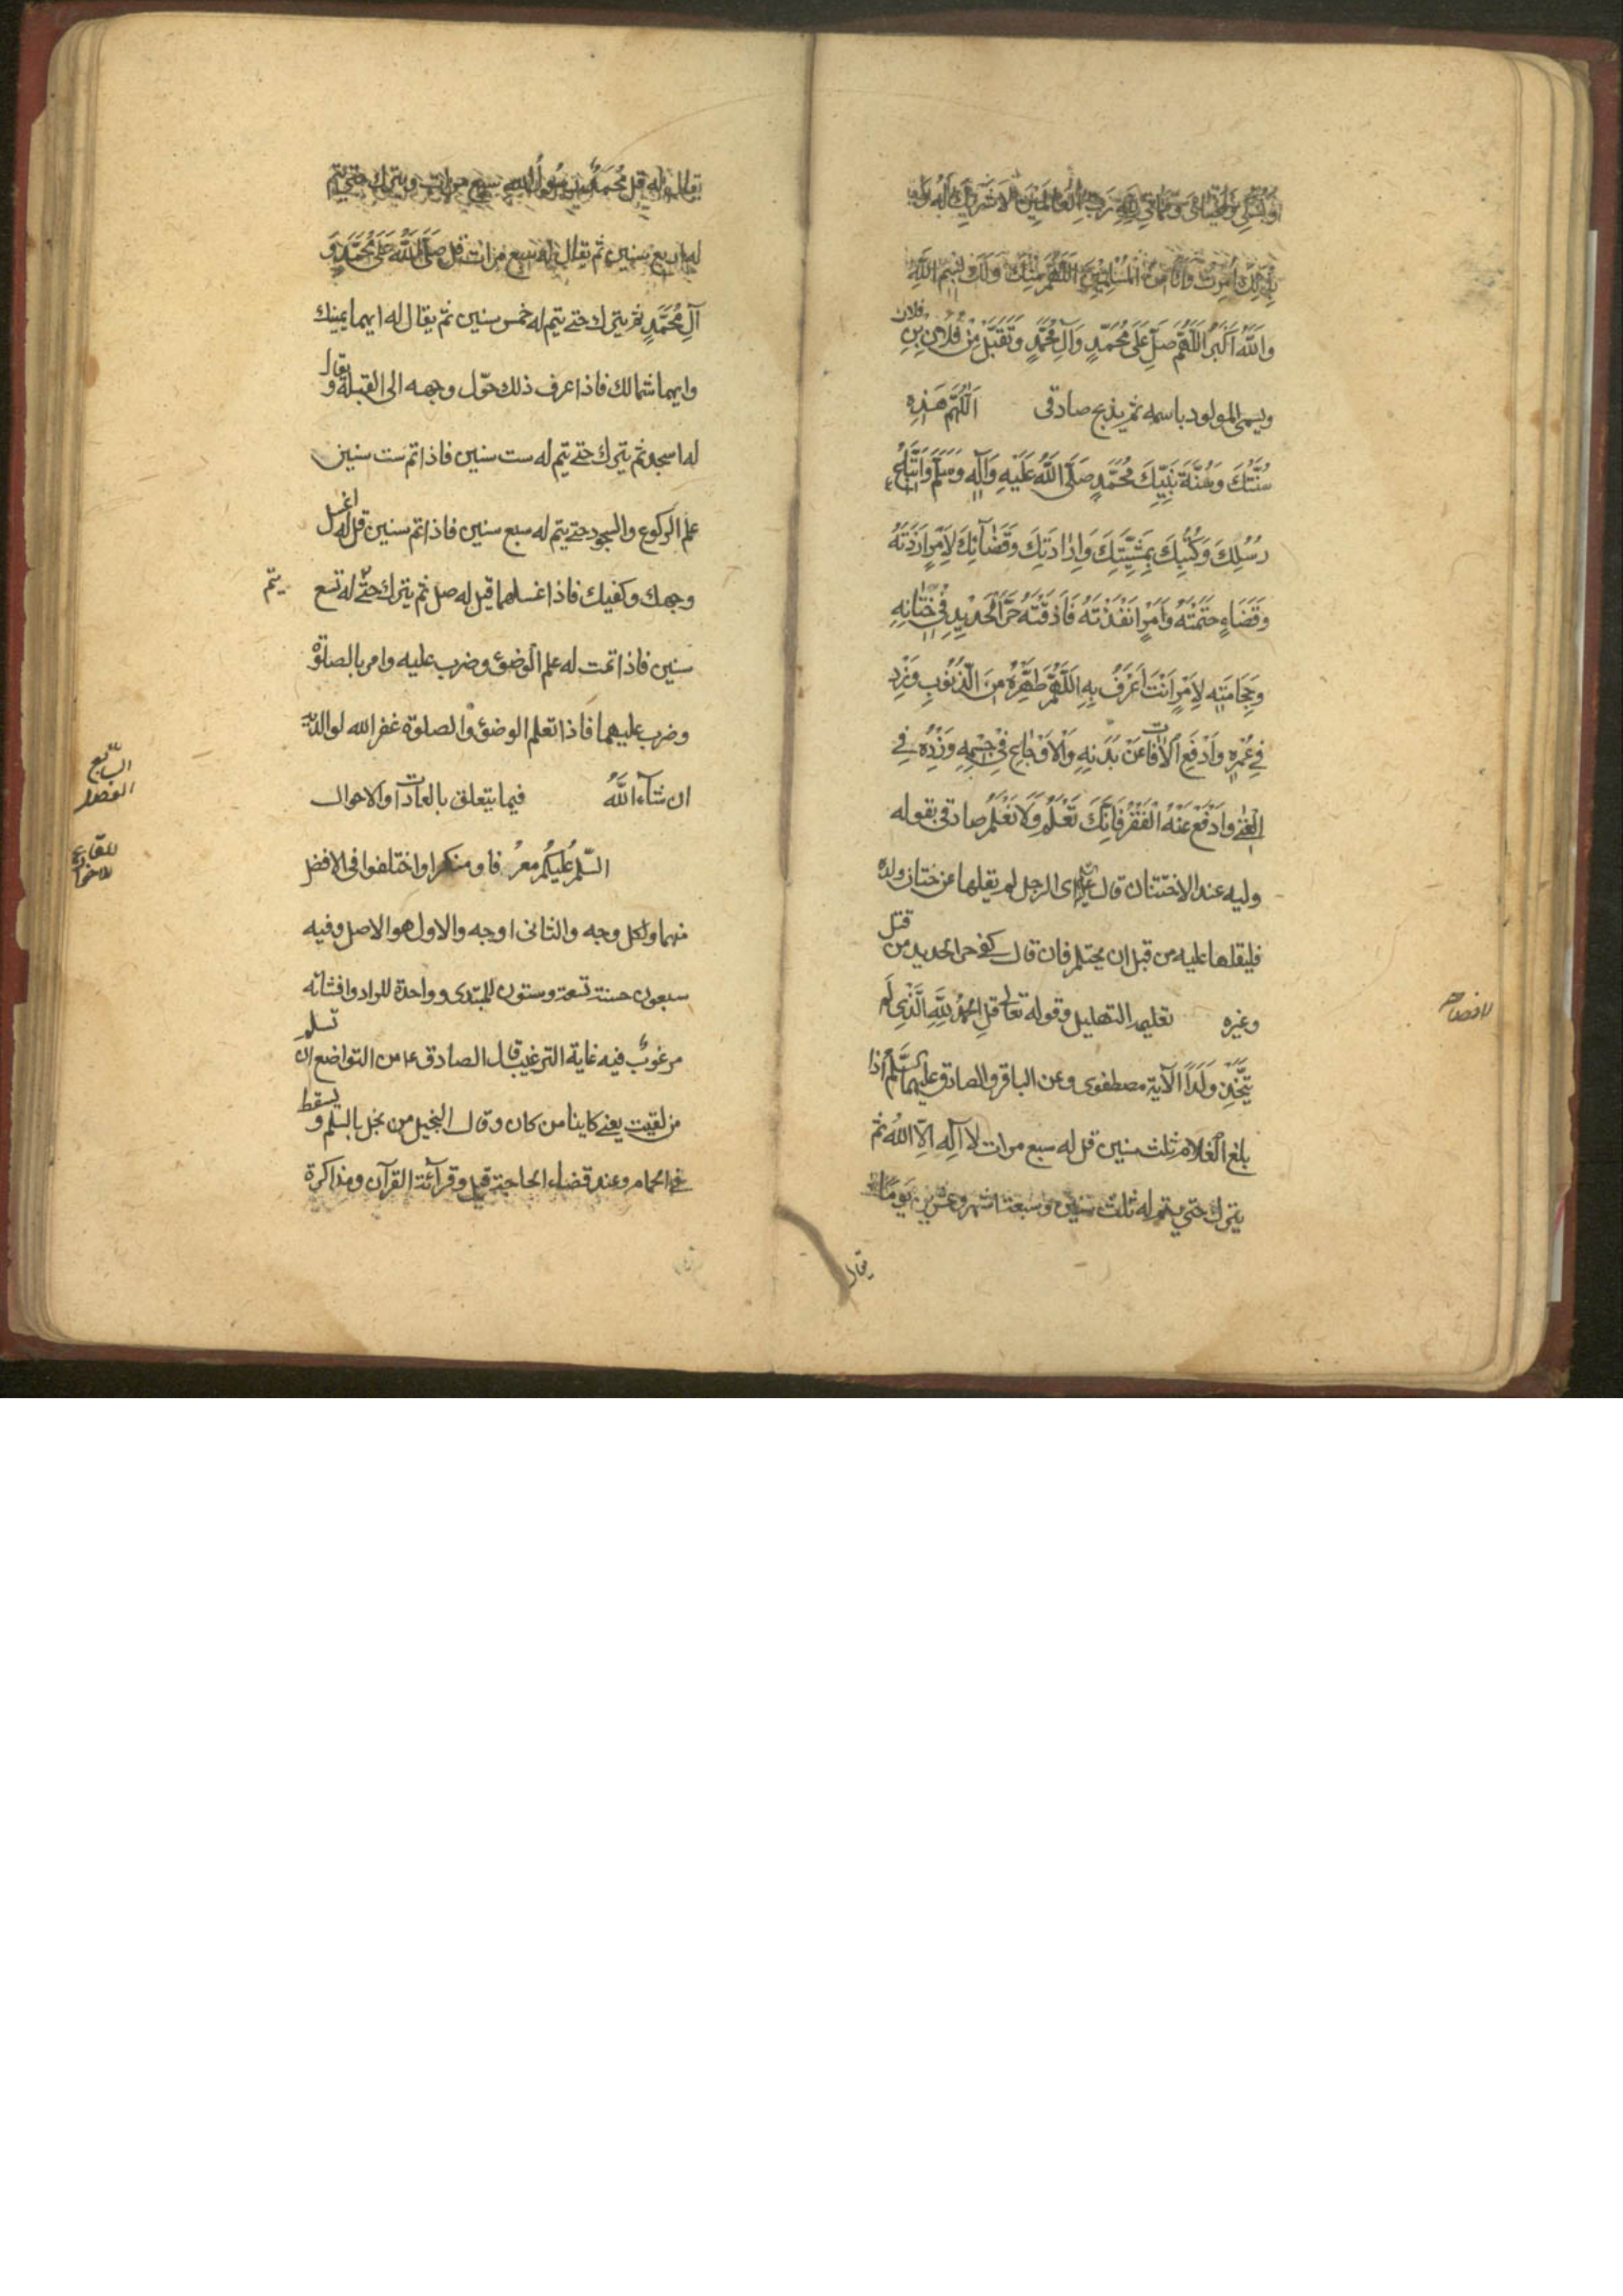 وَنُسُكِي وَمَحْيَايَ وَمَمَاتِي لِلَّهِ رَبِّ الْعَالَمِينَ لَا شَرِيكَ لَهُ وَ
بِذَلِكَ أُمِرْتُ وَأَنَا مِنَ الْمُسْلِمِينَ اَللّٰهُمَّ مِنْكَ وَلَكَ بِسْمِ اللَّهِ
وَاللَّهُ أَكْبَرُ اَللّٰهُمَّ صَلِّ عَلَى مُحَمَّدٍ وَآلِ مُحَمَّدٍ وَتَقَبَّلْ مِنْ فُلَانِ بْنِ فلان
ويسمى المولود باسمه ثم يذبح صادقى اَللّٰهُمَّ هَذِهِ
سُنَّتُكَ وَسُنَّةُ نَبِيِّكَ مُحَمَّدٍ صَلَّى اللَّهُ عَلَيْهِ وَآلِهِ وَسَلَّمَ وَاتِّبَاعُ
رُسُلِكَ وَكُتُبِكَ بِمَشِيَّتِكَ وَإِرَادَتِكَ وَقَضَائِكَ لِأَمْرٍ أَرَدْتَهُ
وَقَضَاءٍ حَتَمْتَهُ وَأَمْرٍ أَنْفَذْتَهُ فَأَذَقْتَهُ حَرَّ الْحَدِيدِ فِي خِتَانِهِ
وَحِجَامَتِهِ لِأَمْرٍ أَنْتَ أَعْرَفُ بِهِ اَللّٰهُمَّ طَهِّرْهُ مِنَ الذُّنُوبِ وَزِدْ
فِي عُمْرِهِ وَادْفَعِ الْآفَاتِ عَنْ بَدَنِهِ وَالْأَوْجَاعَ فِي جِسْمِهِ وَزِدْهُ فِي
الْغِنَى وَادْفَعْ عَنْهُ الْفَقْرَ فَإِنَّكَ تَعْلَمُ وَلَا نَعْلَمُ صادقى بقوله
وليه عند الاختتان قال اى الرجل لم يقلها عن ختان ولده
فليقلها عليه من قبل ان يحتلم فان قال كفى حر الحديد من قتل
وغيره تعليم التهليل وقوله تعالى قُلِ الْحَمْدُ لِلَّهِ الَّذِي لَمْ
لافصاح
يَتَّخِذْ وَلَدًا الآية مصطفوى وعن الباقر والصادق عليهما السلم اذا
بلغ الغلام ثلث سنين قل له سبع مرات لا اله الا الله ثم
يترك حتى يتم له ثلث سنين وسبعة اشهر وعشرين يوما
يقال
يقال له قل مُحَمَّدٌ رَسُولُ اللهِ سبع مرات ويترك حتى يتم
له اربع سنين ثم يقال له سبع مرات قل صَلَّى اللَّهُ عَلَى مُحَمَّدٍ وَ
آلِ مُحَمَّدٍ ثم يترك حتى يتم له خمس سنين ثم يقال له ايهما يمينك
وايهما شمالك فاذا عرف ذلك حوّل وجهه الى القبلة و يقال
له اسجد ثم يترك حتى يتم له ست سنين فاذا تم ست سنين
علم الركوع والسجود حتى يتم له سبع سنين فاذا تم سنين قل له اغسل
وجهك وكفيك فاذا غسلهما قيل له صل ثم يترك حتى له تسع يتم
سنين فاذا تمت له علم الوضوء وضرب عليه وامر بالصلوة
وضرب عليهما فاذا تعلم الوضوء والصلوة غفر الله لوالديه
ان شاء اللَّهُ فيما يتعلق بالعادات والاحوال
السابع الفصل
السَّلَمُ عَلَيْكُمْ معرفا ومنكرا واختلفوا فى الافضل
منهما ولكل وجه والثانى اوجه والاول هو الاصل وفيه
سبعون حسنة تسعة وستون للمبتدى وواحدة للراد وافشائه
مرغوب فيه غاية الترغيب قال الصادق ع من التواضع ان تسلم
من لقيت يعنى كاينا من كان وقال البخيل من بخل بالسلم و يسقط
فى الحمام وعند قضاء الحاجة قيل وقرآئة القرآن ومذاكرة